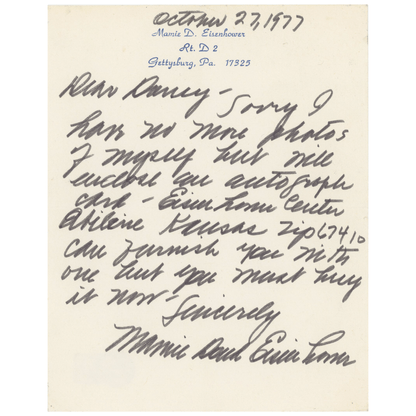 October 27, 1977
Mamie D. Eisenhower
Rt. D 2
Gettysburg, Pa. 17325
Dear Darcey -
Sorry I
have no more photos
of myself but will
enclose an autograph
card - Eisenhower Center
Abilene Kansas Zip 67410
can furnish you with
one but you must buy
it now -
Sincerely
Mamie Doud Eisenhower